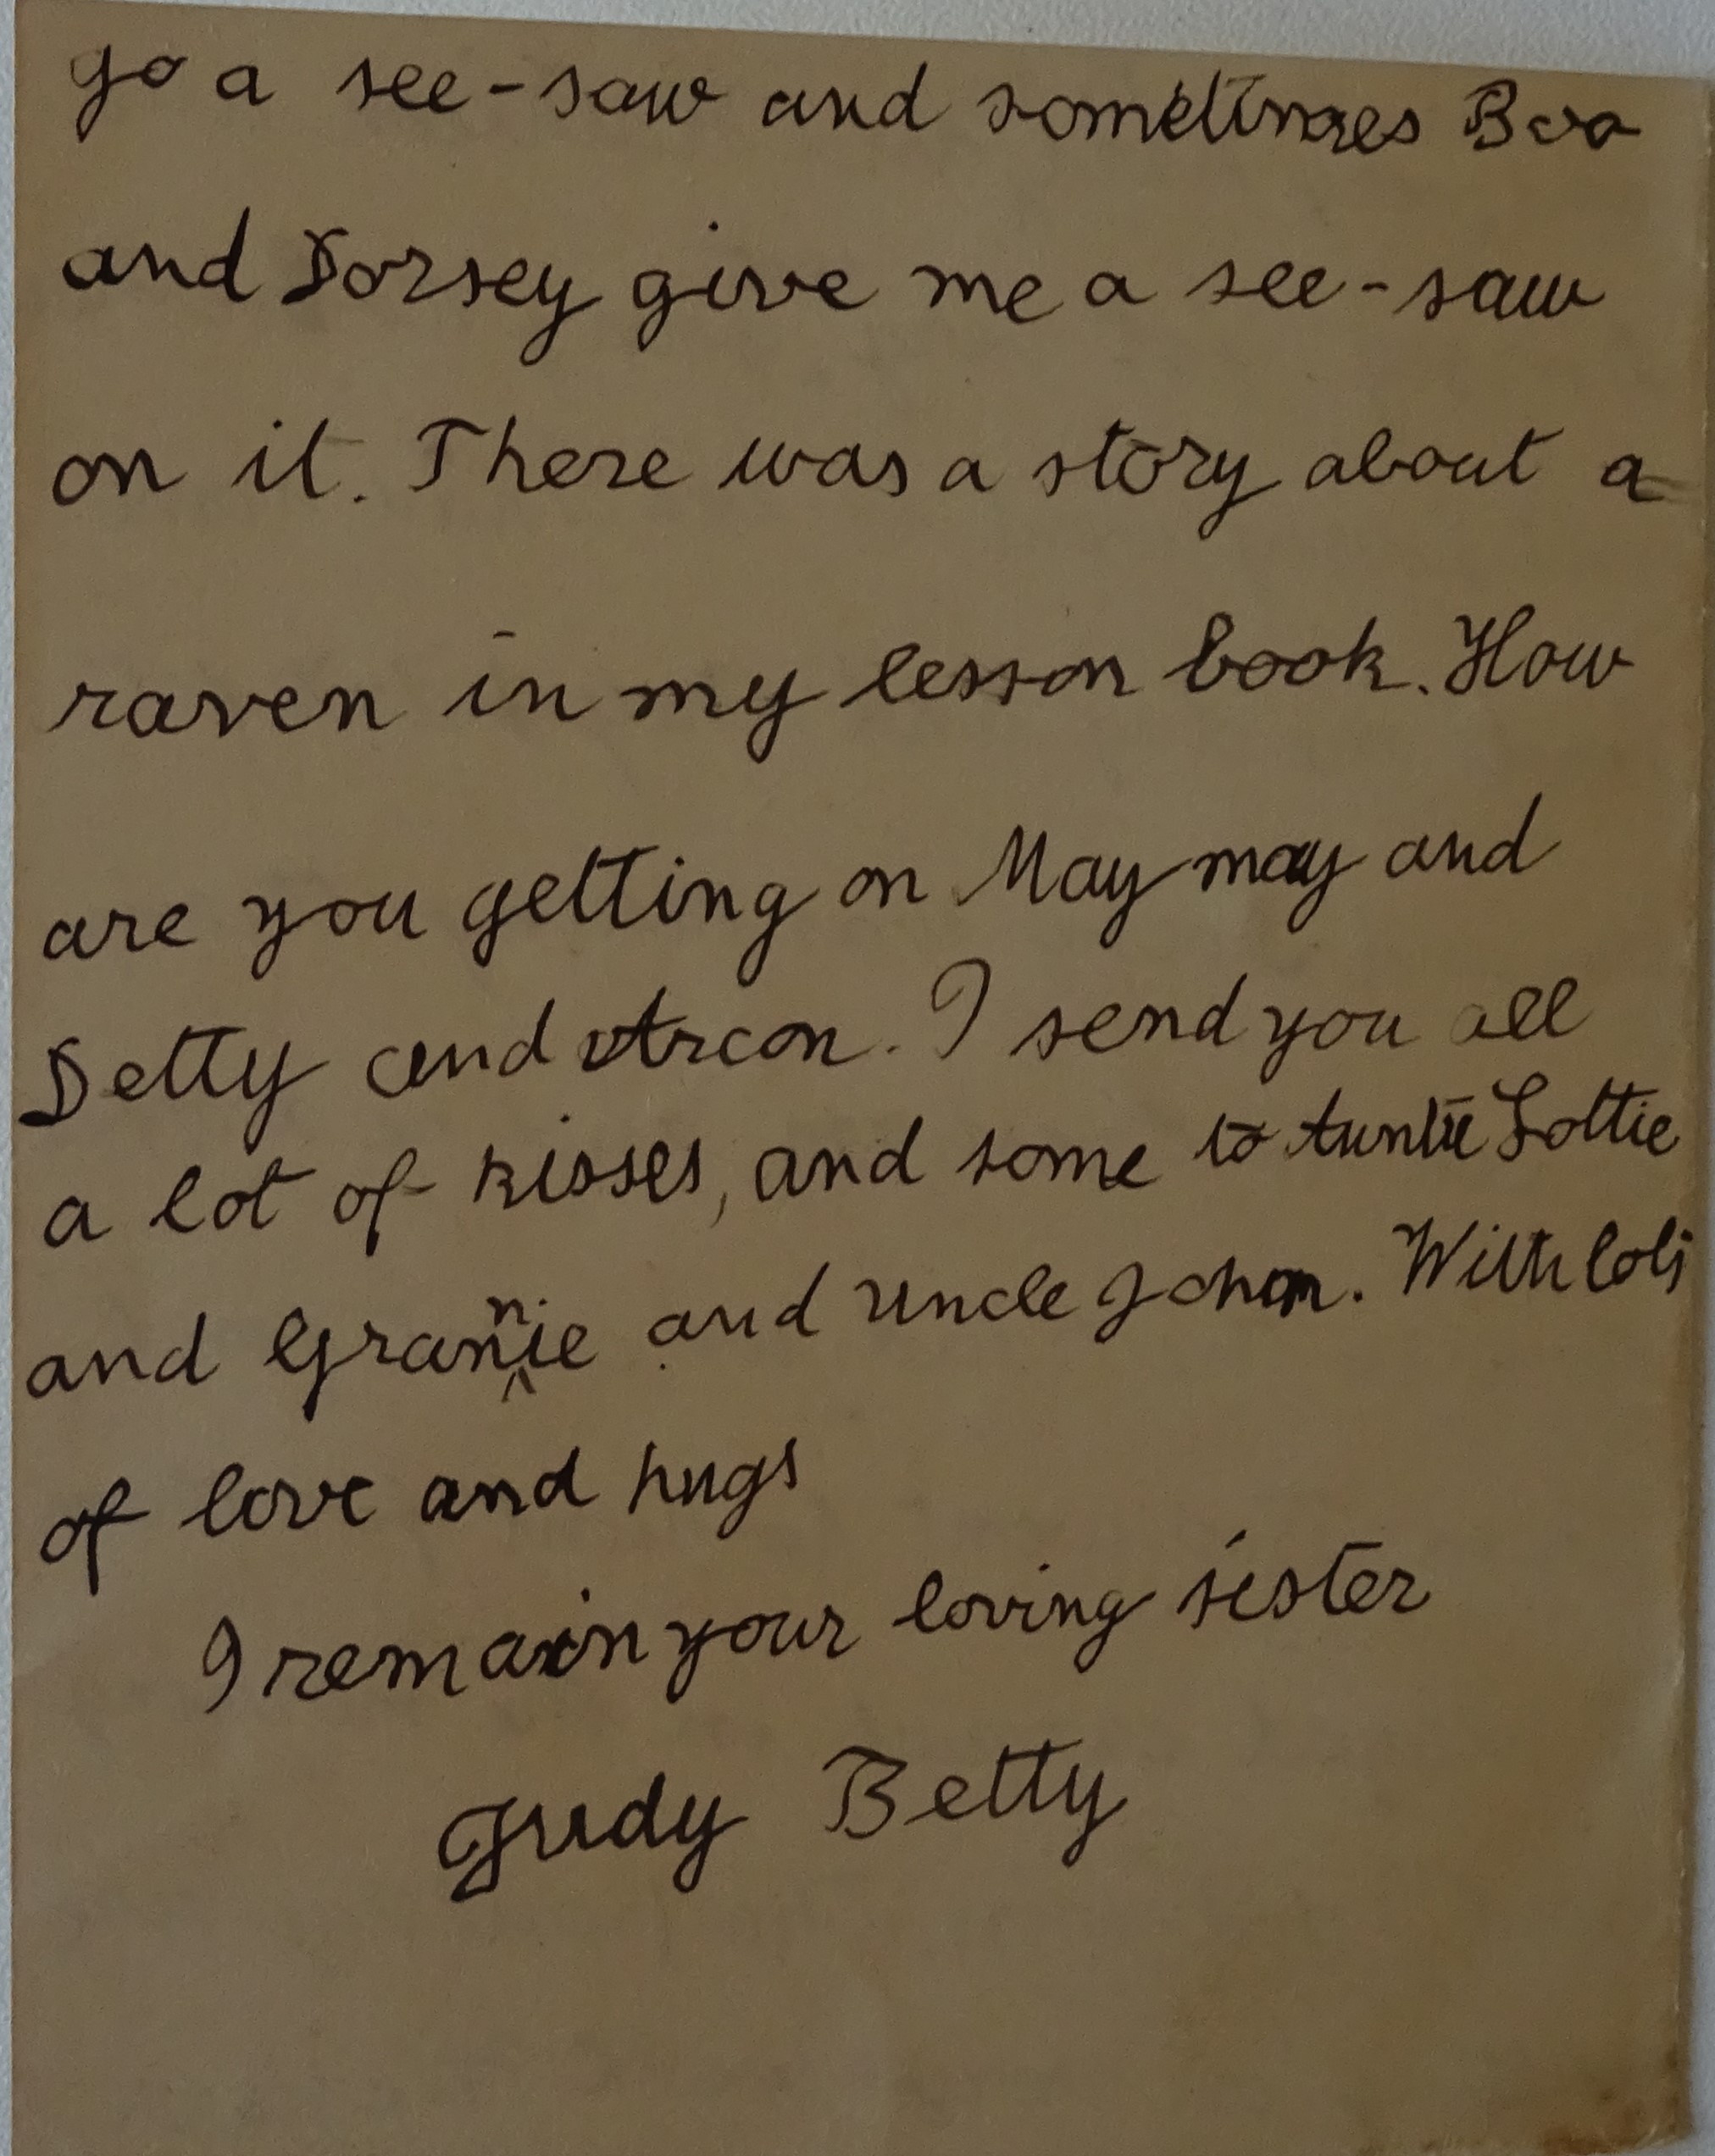 go a see-saw and sometimes Boo
and Dorsey give me a see-saw
on it. There was a story about a
raven in my lesson book. How
are you getting on May may and
Detty and Arcon. I send you all
a lot of kisses, and some to Auntie Lottie
and Grannie and Uncle John. With lots
of love and hugs
I remain your loving sister
Judy Betty